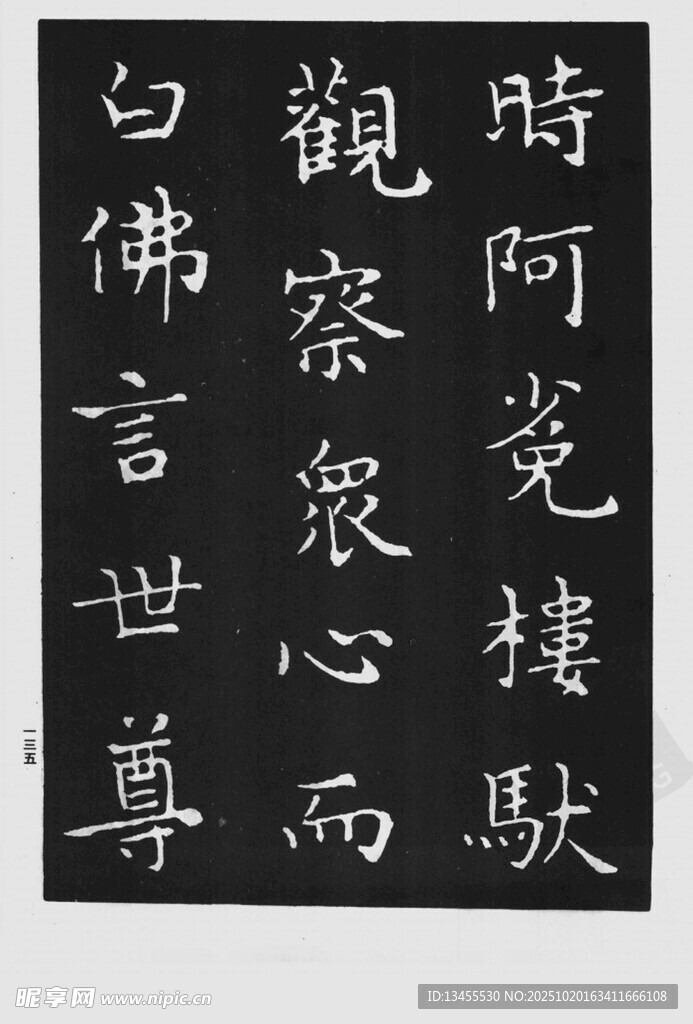 時阿㝹樓馱
觀察眾心而
白佛言世尊
一三五
昵享网 www.nipic.cn
ID:13455530 NO:20251020163411666108